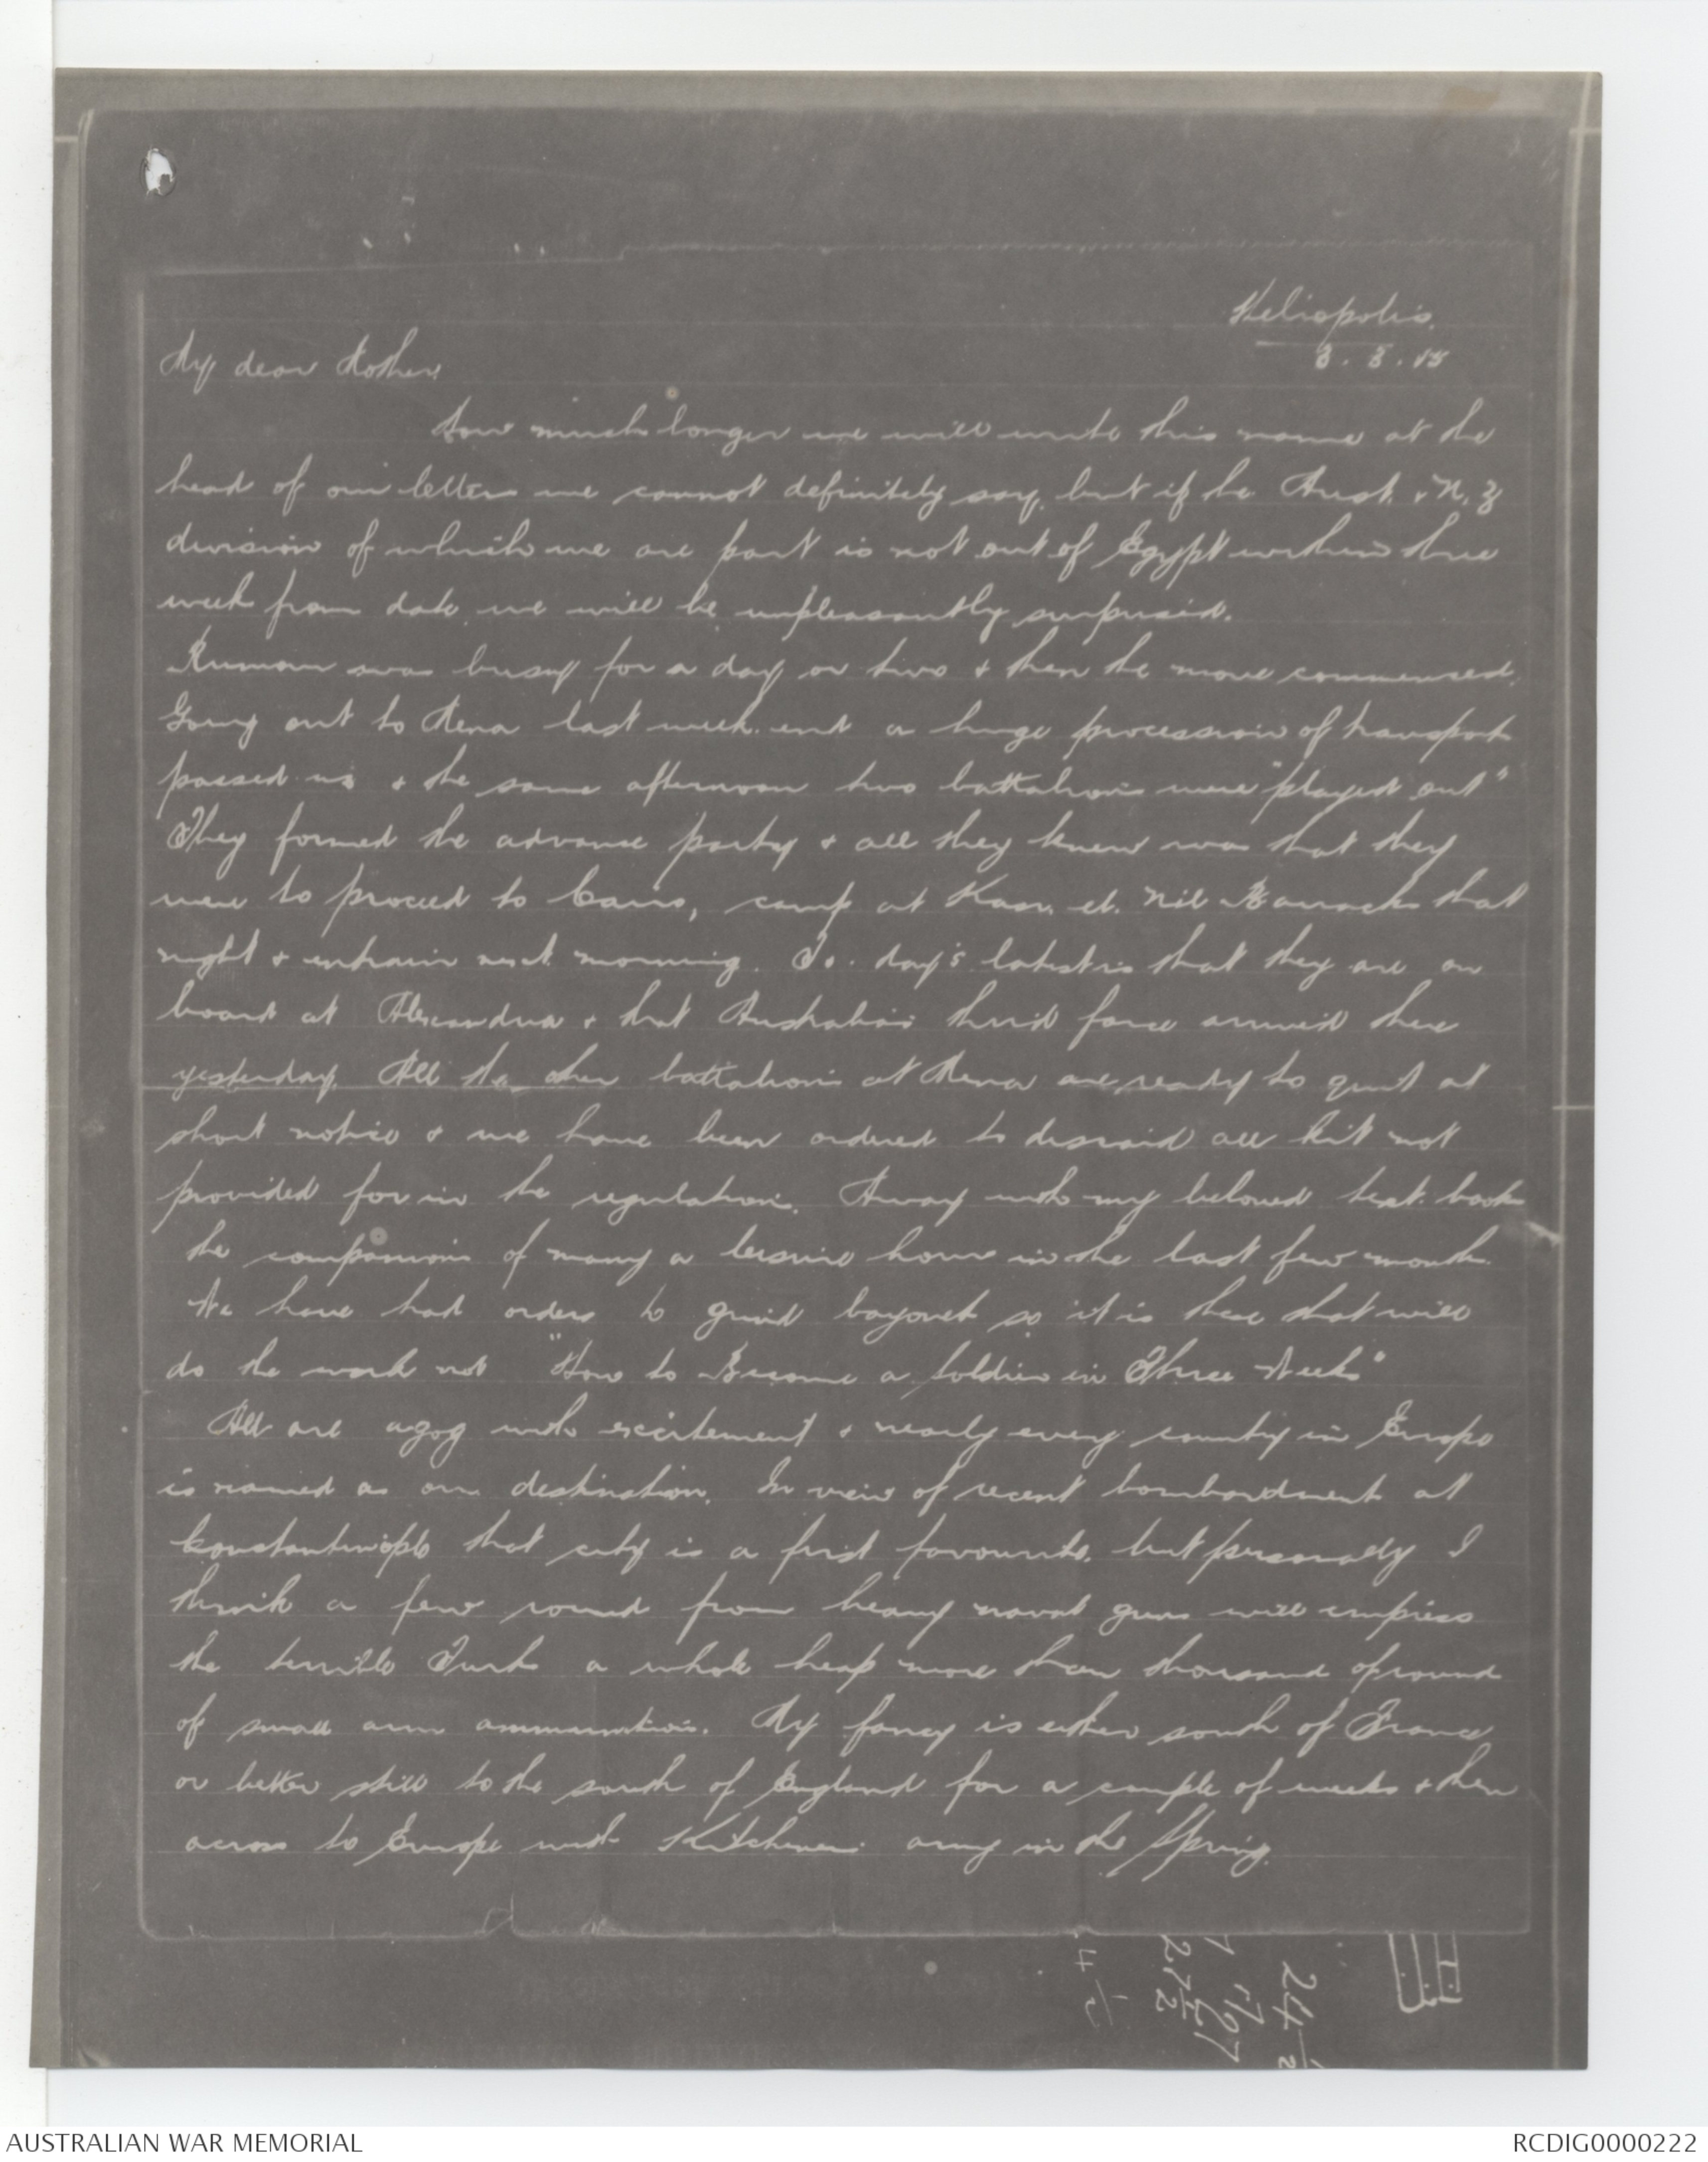 Heliopolis.
3.3.15
My dear Mother,
How much longer we will write this name at the
head of our letters we cannot definitely say, but if the Aust. & N.Z
division of which we are part is not out of Egypt within three
weeks from date we will be unpleasantly surprised.
Rumour was busy for a day or two & then the move commenced.
Going out to Mena last week-end a huge procession of transport
passed us & the same afternoon two battalions were "played out"
They formed the advance party & all they knew was that they
were to proceed to Cairo, camp at Kasr. el. Nil Barracks that
night & entrain next morning. To-day's latest is that they are on
board at Alexandria & that Australia's third force arrived there
yesterday. All the other battalions at Mena are ready to quit at
short notice & we have been ordered to discard all kit not
provided for in the regulations. Away with my beloved text books
the companions of many a leisure hour in the last few months.
We have had orders to grind bayonets so it is these that will
do the work not "How to Become a Soldier in Three Weeks"
All are agog with excitement & nearly every country in Europe
is named as our destination. In view of recent bombardments at
Constantinople that city is a first favourite, but personally I
think a few rounds from heavy naval guns will impress
the terrible Turk a whole heap more than thousands of rounds
of small arm ammunition. My fancy is either south of France
or better still to the south of England for a couple of weeks & then
across to Europe with Kitchener's army in the Spring.
AUSTRALIAN WAR MEMORIAL
RCDIG0000222